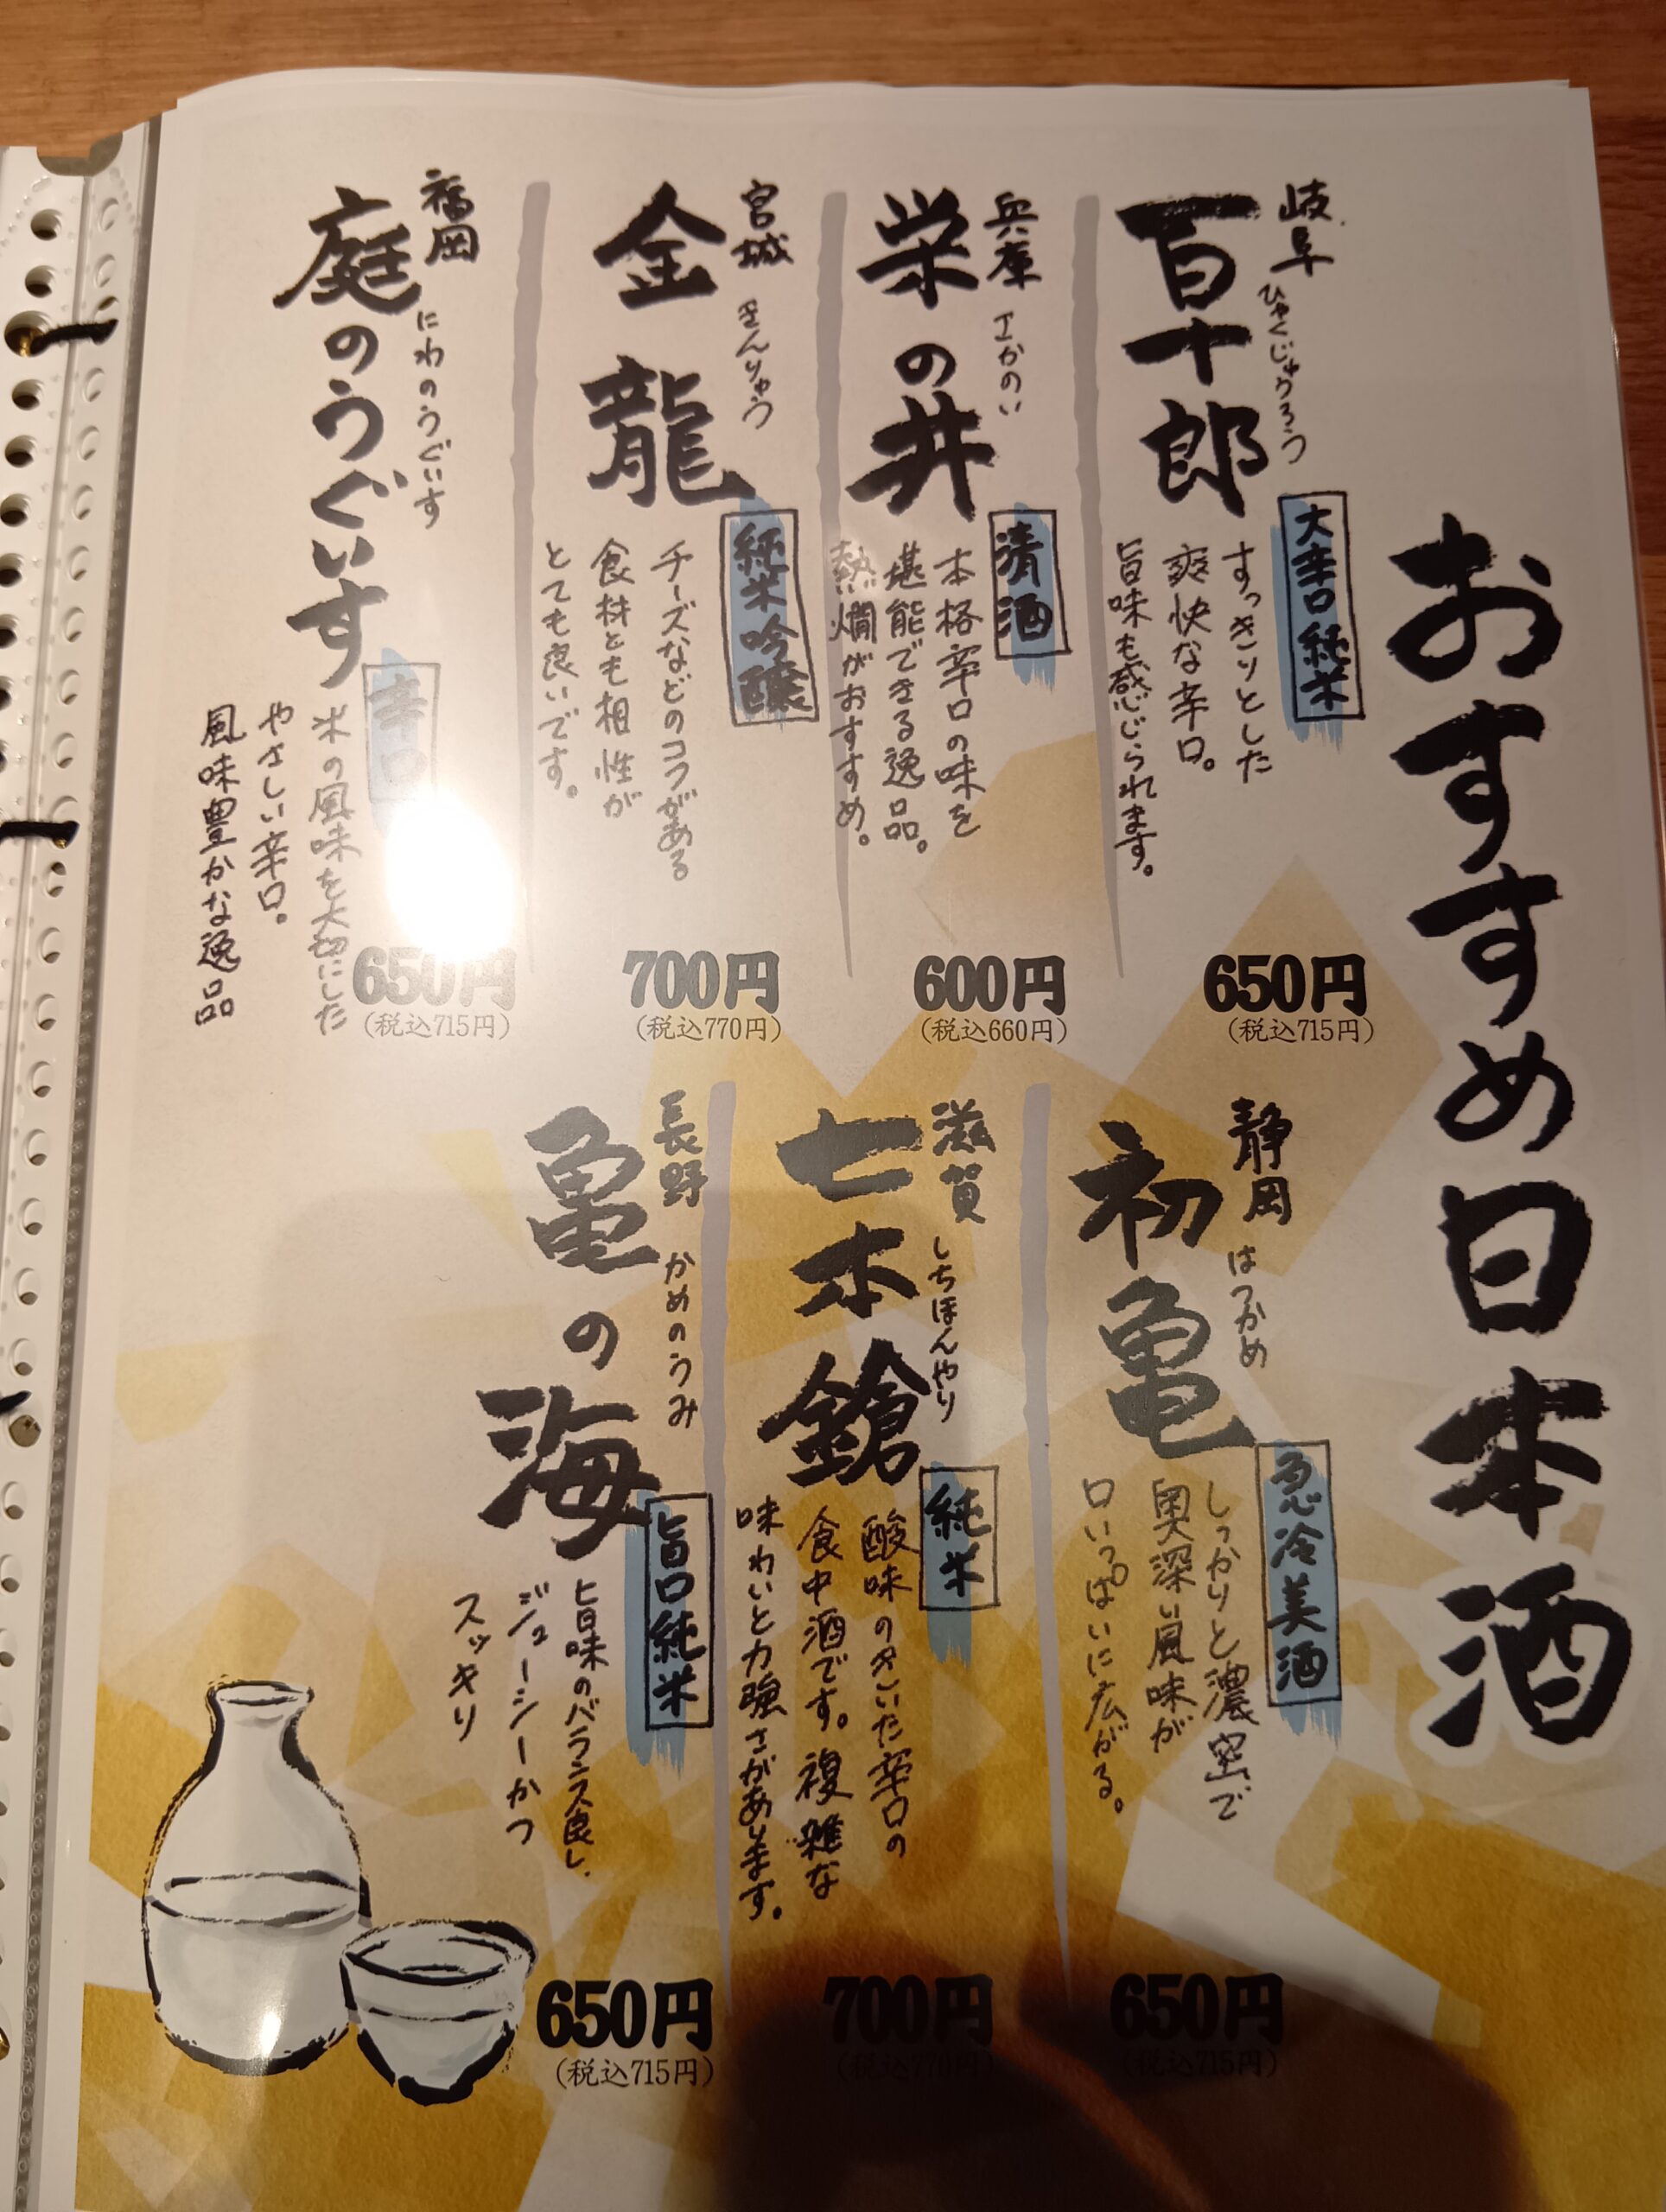 おすすめ日本酒
岐阜
百十郎
ひゃくじゅうろう
大辛口純米
すっきりとした
爽快な辛口。
旨味も感じられます。
650円
(税込715円)
兵庫
栄の井
エかのい
清酒
本格辛口の味を
堪能できる逸品。
熱燗がおすすめ。
600円
(税込660円)
宮城
金龍
きんりゅう
純米吟醸
チーズなどのコクがある
食材とも相性が
とても良いです。
700円
(税込770円)
福岡
庭のうぐいす
にわのうぐいす
辛口
米の風味を大切にした
やさしい辛口。
風味豊かな逸品
650円
(税込715円)
静岡
初亀
はつかめ
急冷美酒
しっかりと濃密で
奥深い風味が
口いっぱいに広がる。
650円
(税込715円)
滋賀
七本鎗
しちほんやり
純米
酸味のきいた辛口の
食中酒です。複雑な
味わいと力強さがあります。
700円
(税込770円)
長野
亀の海
かめのうみ
旨口純米
旨味のバランス良し、
ジューシーかつ
スッキリ
650円
(税込715円)